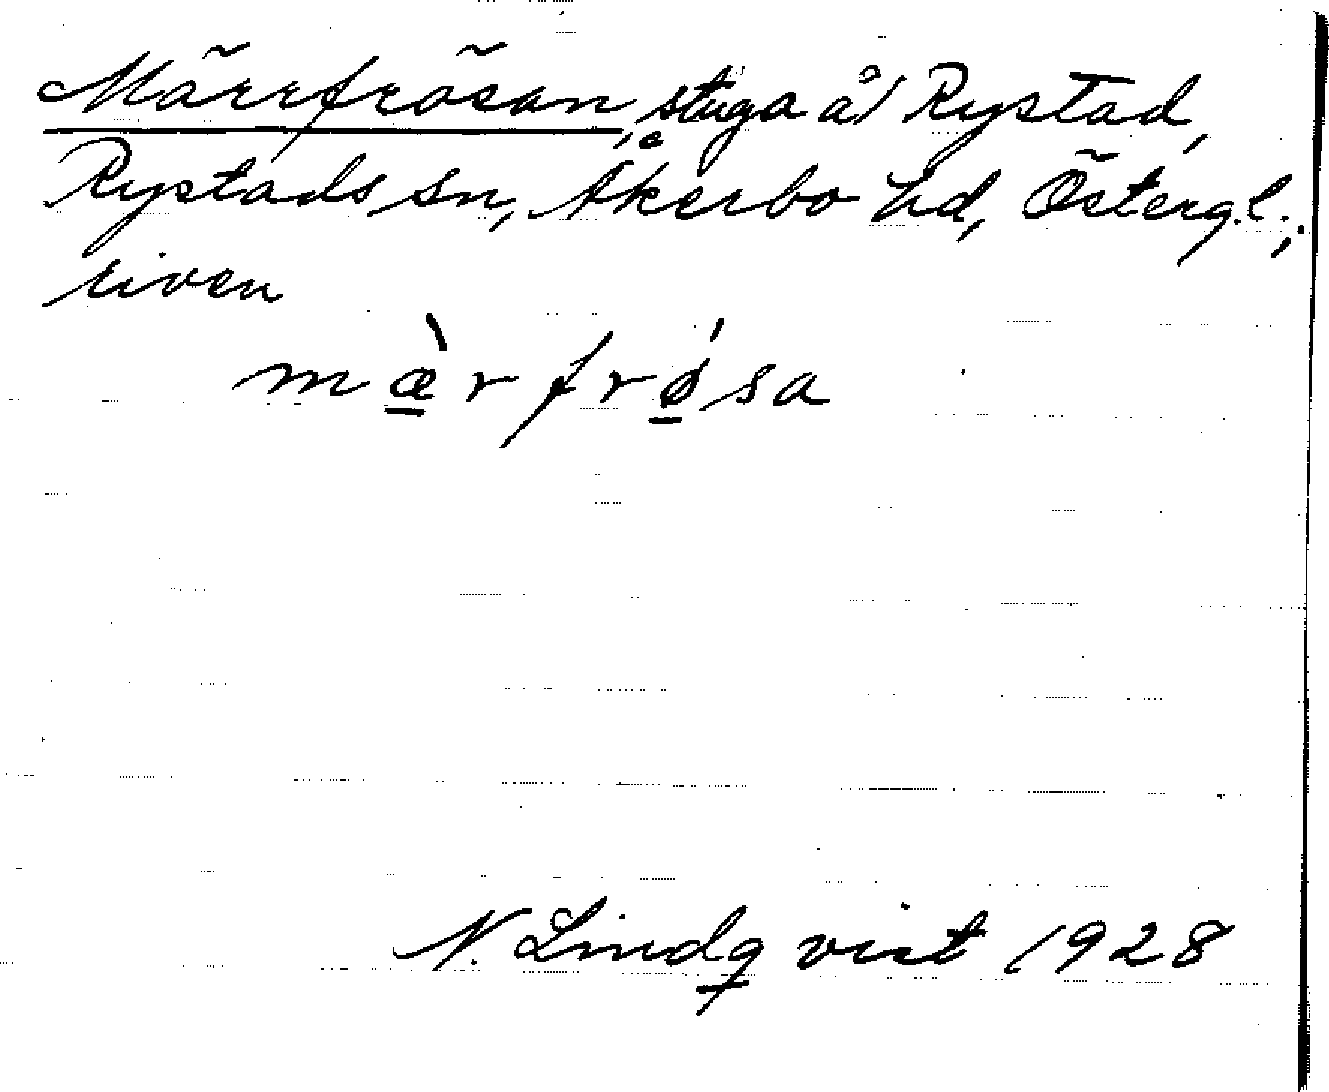 Märrfrösan, stuga å Rystad,
Rystads sn, Åkerbo hd, Östergl.;
riven
mæ̀rfrǿsa
N. Lindqvist 1928